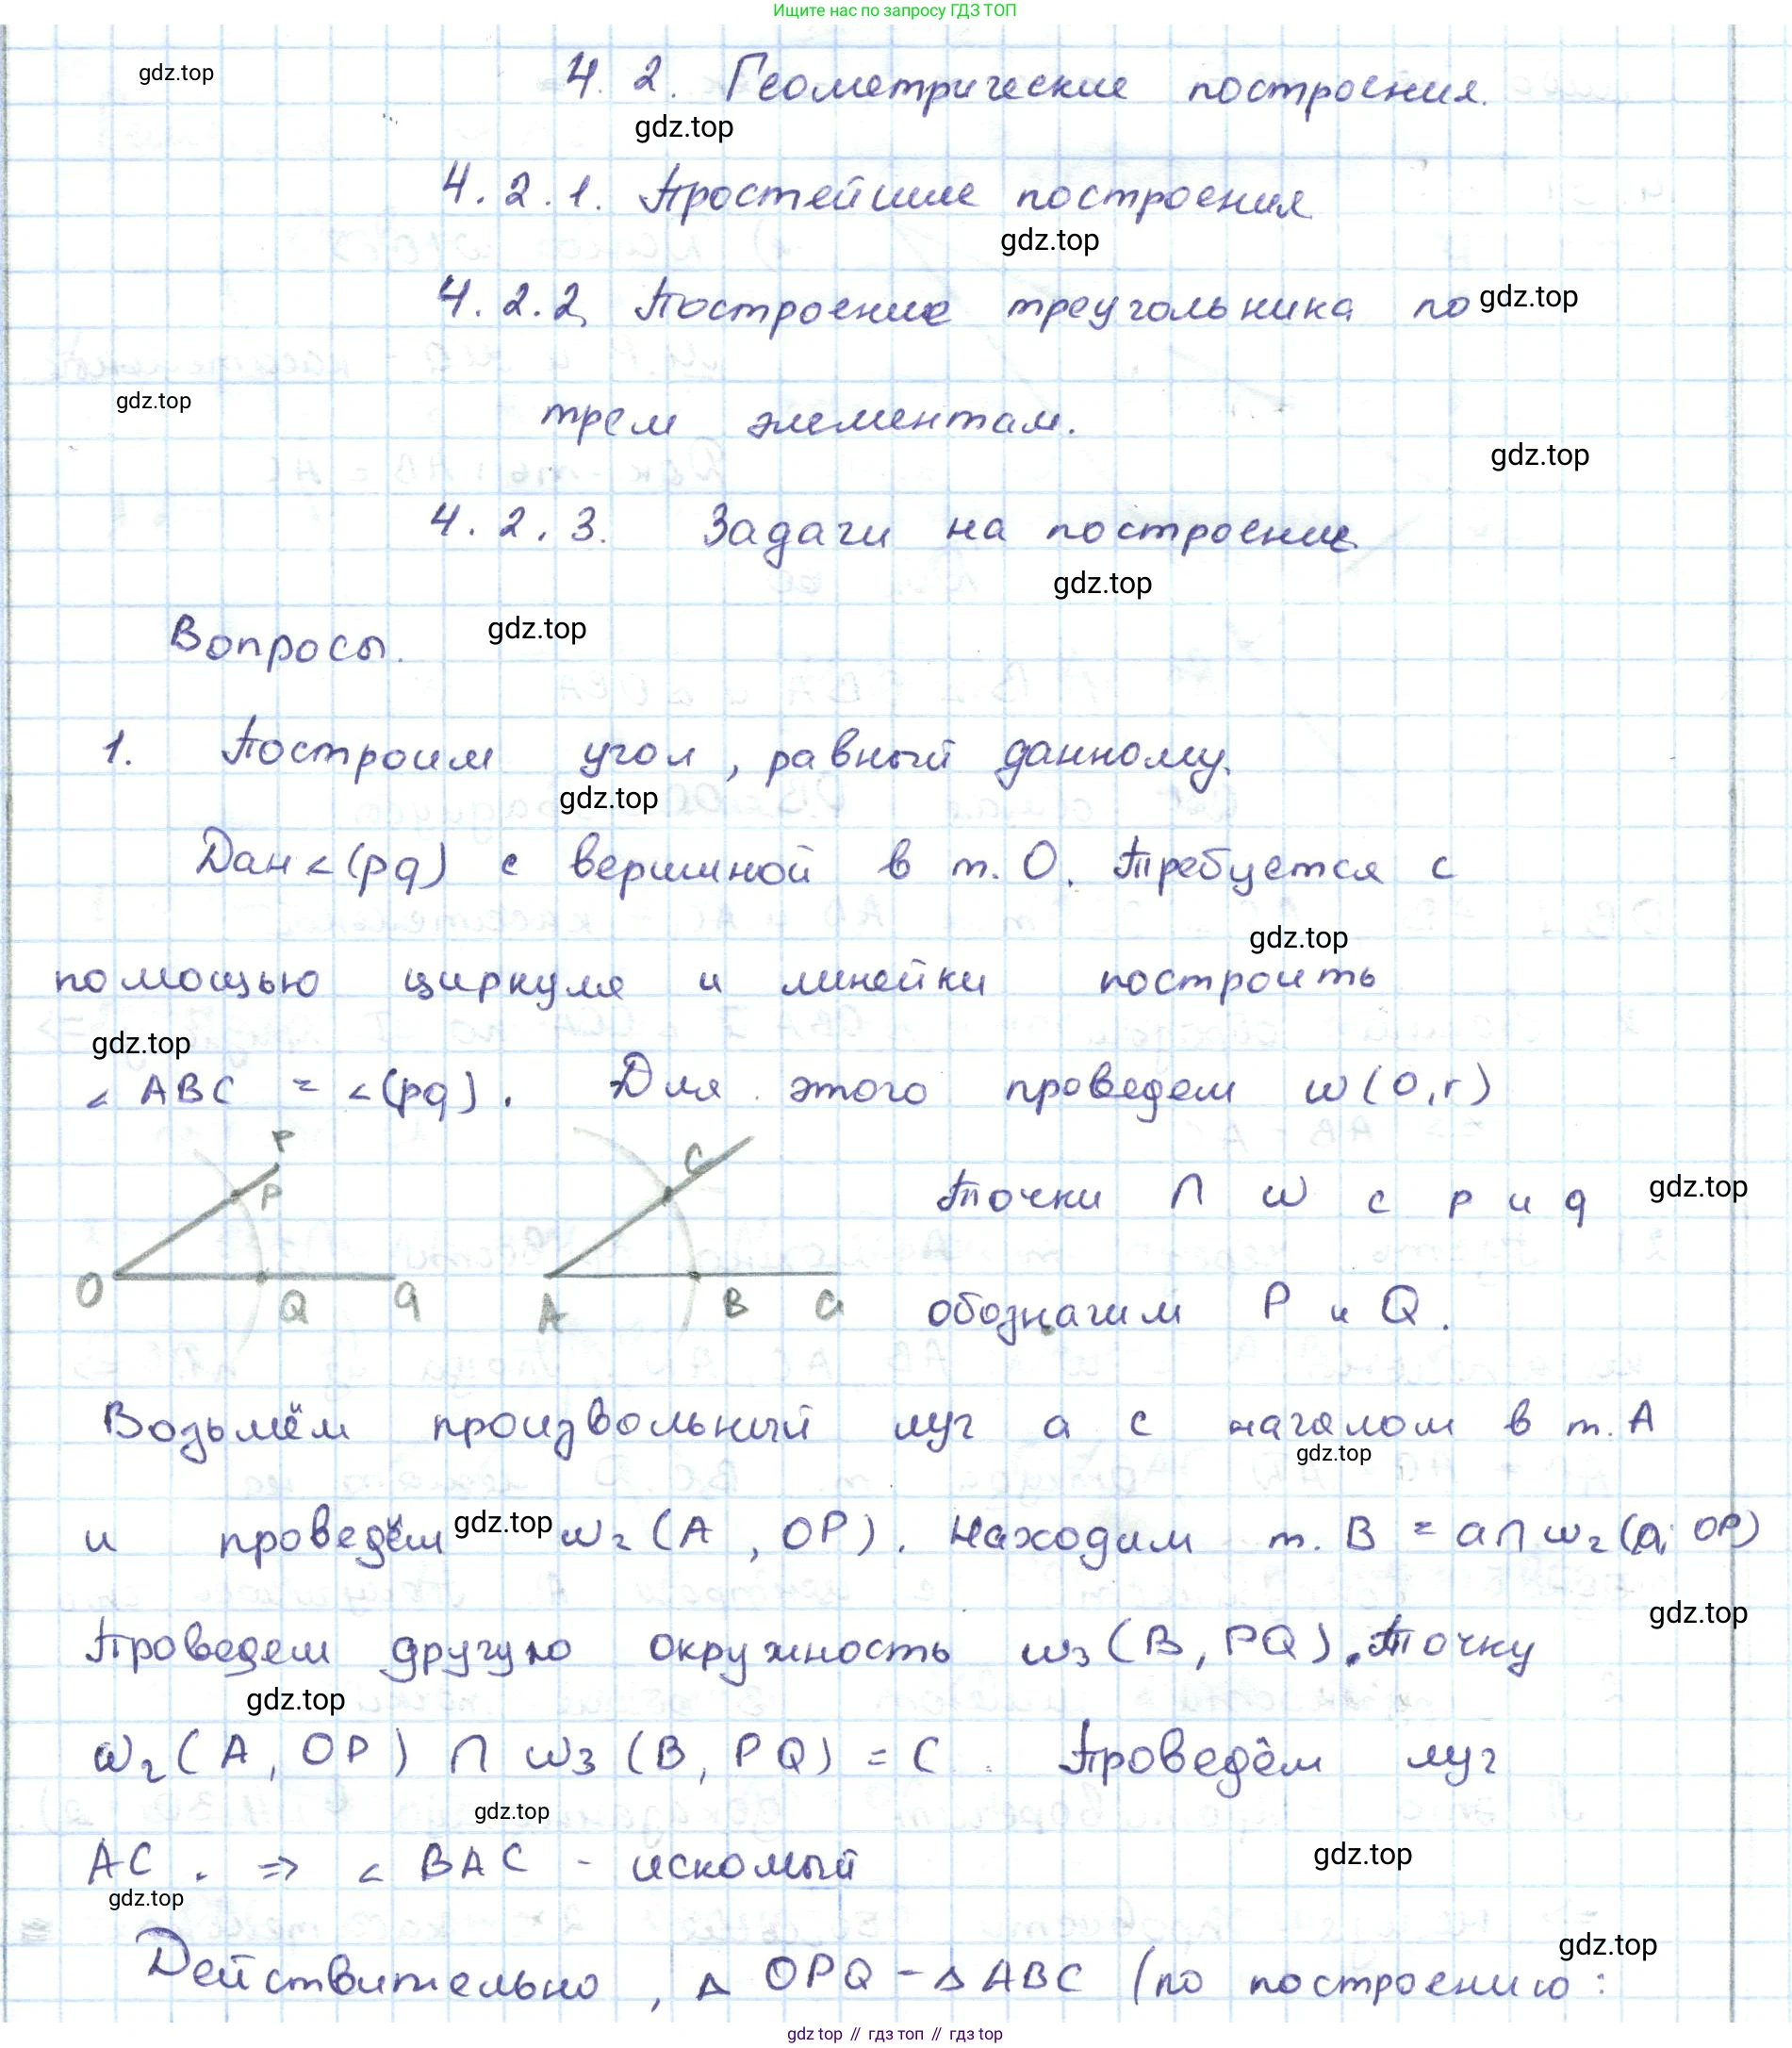 Ищите нас по запросу ГДЗ ТОП
4.2. Геометрические построения.
gdz.top
gdz.top
4.2.1. Простейшие построения
gdz.top
4.2.2. Построение треугольника по
gdz.top
трем элементам.
gdz.top
gdz.top
4.2.3. Задачи на построение
gdz.top
Вопросы.
gdz.top
1. Построим угол, равный данному.
gdz.top
Дан ∠(pq) с вершиной в т. O. Требуется с
gdz.top
помощью циркуля и линейки построить
gdz.top
∠ ABC = ∠(pq). Для этого проведем w(O,r)
P
P
O
Q
q
C
A
B
a
Точки ∩ w с p и q
gdz.top
обозначим P и Q.
Возьмём произвольный луч a с началом в т. A
gdz.top
и проведём w₂(A, OP). Находим т. B = a∩w₂(a; OP)
gdz.top
gdz.top
Проведем другую окружность w₃(B, PQ). Точку
gdz.top
w₂(A, OP) ∩ w₃(B, PQ) = C. Проведём луч
gdz.top
AC. ⇒ ∠ BAC - искомый
gdz.top
gdz.top
Действительно, △ OPQ - △ ABC (по построению:
gdz.top
gdz top // гдз топ // гдз top